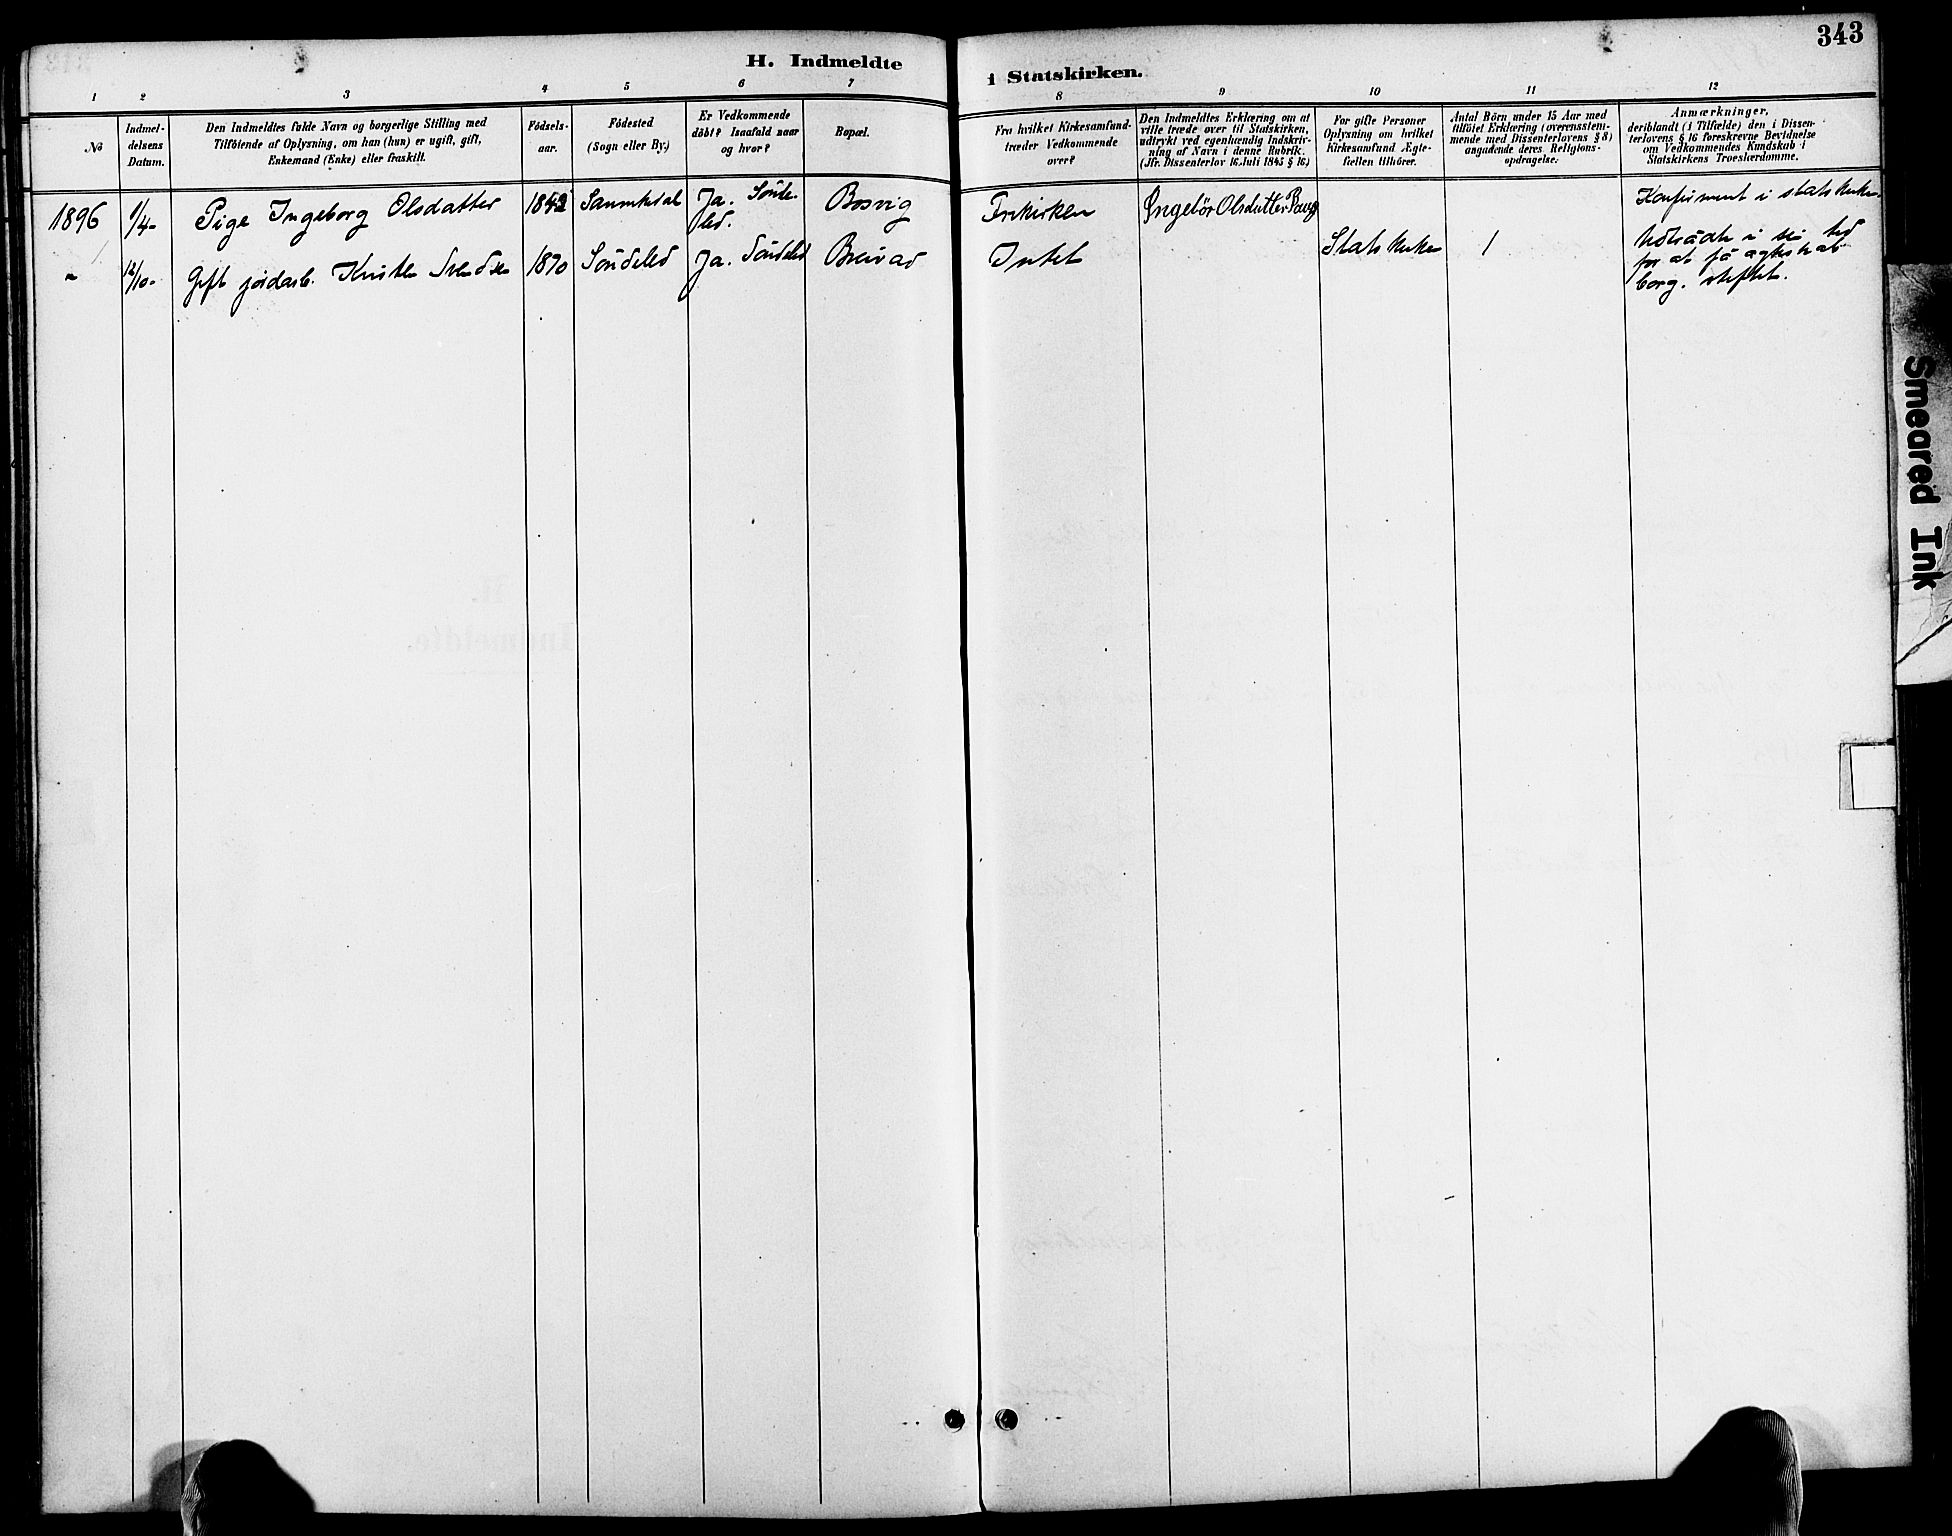 343
H. Indmeldte i Statskirken.
1 2 3 4 5 6 7 8 9 10 11 12
№
Indmel-
delsens
Datum.
Den Indmeldtes fulde Navn og borgerlige Stilling med
Tilföiende af Oplysning, om han (hun) er ugift, gift,
Enkemand (Enke) eller fraskilt.
Födsels-
aar.
Födested
(Sogn eller By.)
Er Vedkommende
döbt? Isaafald naar
og hvor?
Bopæl.
Fra hvilket Kirkesamfund
træder Vedkommende
over?
Den Indmeldtes Erklæring om at
ville træde over til Statskirken,
udtrykt ved egenhændig Indskriv-
ning af Navn i denne Rubrik.
(Jfr. Dissenterlov 16. Juli 1845 § 16)
For gifte Personer
Oplysning om hvilket
Kirkesamfund Ægte-
fællen tilhörer.
Antal Börn under 15 Aar med
tilföiet Erklæring (overensstem-
mende med Dissenterlovens § 8)
angaaende deres Religions-
opdragelse.
Anmærkninger,
deriblandt (i Tilfælde) den i Dissen-
terlovens § 16 foreskrevne Bevidnelse
om Vedkommendes Kundskab i
Statskirkens Troeslærdomme.
1896 1/4- Pige Ingeborg Olsdatter 1842 Sannikedal Ja. Sönde-
led. Bosvig Frikirken Ingebör Olsdatter Konfirmeret i statskirken.
- 12/10- Gift jordarb. Kristen Svendsen 1870 Söndeled Ja. Söndeled Breivad Intet Statskirken 1 Udtrådte i sin tid
for at få ægteskab
borg. stiftet.
Smeared Ink
H.
Indmeldte.